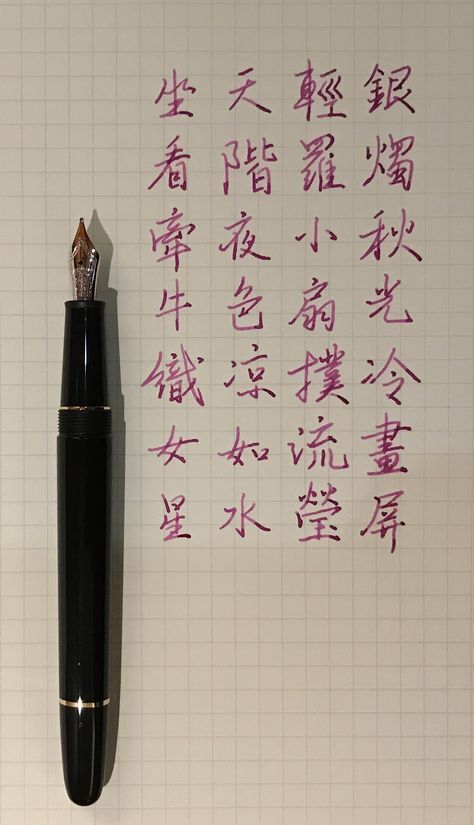 銀燭秋光冷畫屏
輕羅小扇撲流瑩
天階夜色凉如水
坐看牽牛織女星